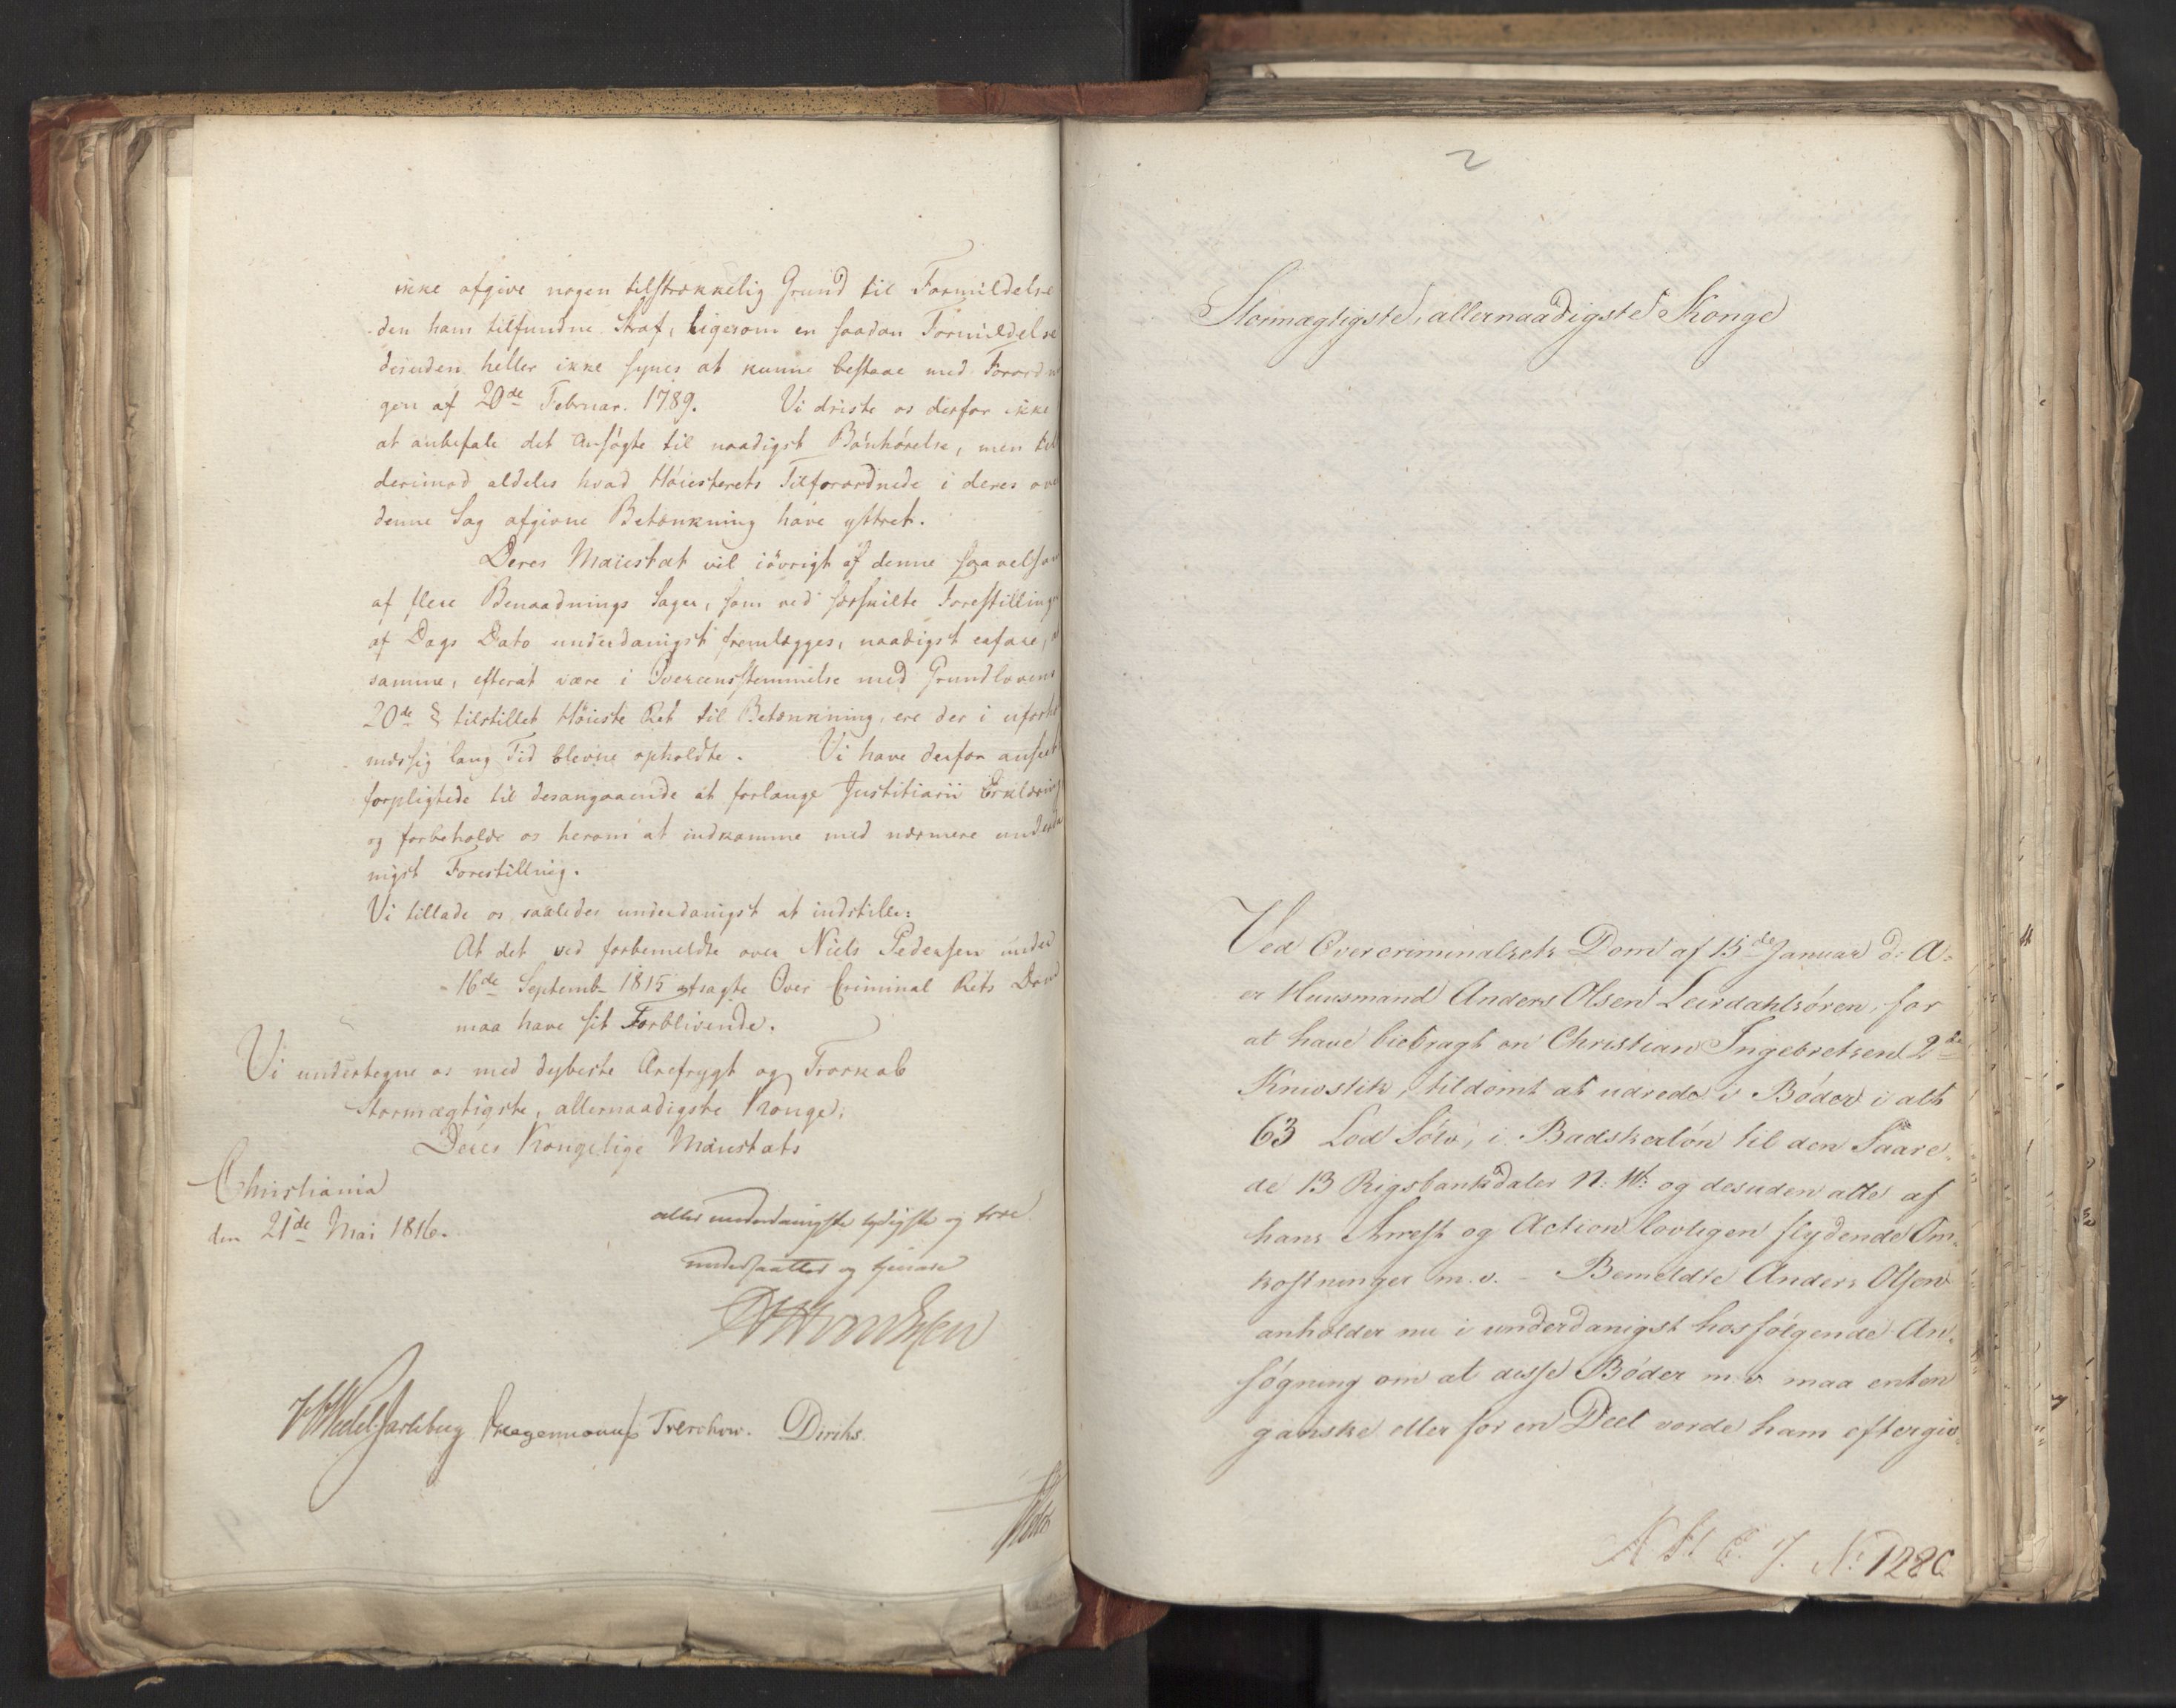 ikke afgive nogen tilstrækkelig Grund til Formildelse
den ham tilfundne Straf, ligesom en saadan Formildelse
desuden heller ikke synes at kunne bestaae med Forordn
gen af 20de Februar. 1789. Vi driste os derfor ikke
at anbefale det Ansøgte til naadigst Bønhørelse, men til
derimod aldeles hvad Høiesterets Tilforordnede i deres ove
denne Sag afgivne Betænkning have yttret.
Deres Maiestæt vil iøvrigt af denne saavelsom
af flere Benaadnings Sager, som ved særskilte Forestillinge
af Dags Dato underdanigst fremlægges, naadigst erfare, a
samme, efterat være i Overeensstemmelse med Grundlovens
20de § tilstillet Høieste Ret til Betænkning, ere der i uforhol
mæssig lang Tid blevne opholdte. Vi have derfor anseet
forpligtede til desangaaende at forlange Justitiarii Erklæring
og forbeholde os herom at indkomme med nærmere underda
nigst Forestilling.
Vi tillade os saaledes underdanigst at indstille:
At det ved forbemeldte over Niels Pedersen under
16de Septemb. 1815 afsagte Over Criminal Rets Dom
maa have sit Forblivende.
Vi undertegne os med dybeste Ærefrygt og Troskab
Stormægtigste, allernaadigste Konge,
Deres Kongelige Maiestæts
Christiania
den 21de Mai 1816.
allerunderdanigste lydigste og troe
undersaatter og tjenere
Wedel Jarlsberg Treschow. Diriks.
2
Stormægtigste, allernaadigste Konge
Ved Overcriminalrets Dom af 15de Januar d: A:
er Huusmand Anders Olsen Leirdahlsøren, for
at have bibragt en Christian Ingebretsen 2de
Knivstik, tildømt at udrede i Bøder i alt
63 Lod Sølv, i Badskerløn til den Saare-
de 13 Rigsbankdaler N. W: og desuden alle af
hans Arrest og Action lovligen flydende Om-
kostninger m. v. - Bemeldte Anders Olsen
anholder nu i underdanigst hosfølgende An-
søgning om at disse Bøder m. v. maa enten
ganske eller for en Deel vorde ham eftergiv-
No 1280